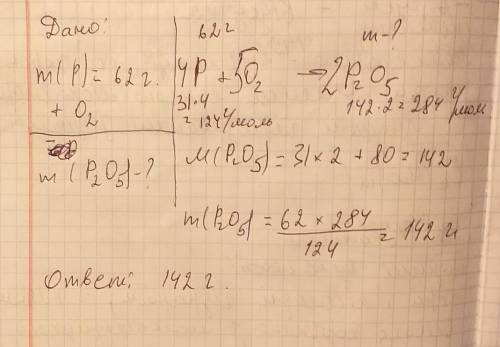 Дано:
m(P) = 62 г.
+ O₂
m(P₂O₅) - ?
62 г m - ?
4P + 5O₂ → 2P₂O₅
31·4 142·2 = 284 г/моль
= 124 г/моль
M(P₂O₅) = 31 × 2 + 80 = 142
m(P₂O₅) = 62 × 284 / 124 = 142 г
Ответ: 142 г.